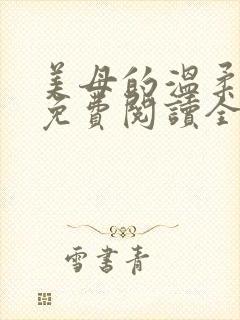 美母的溫柔
免費閱讀全
雪書青